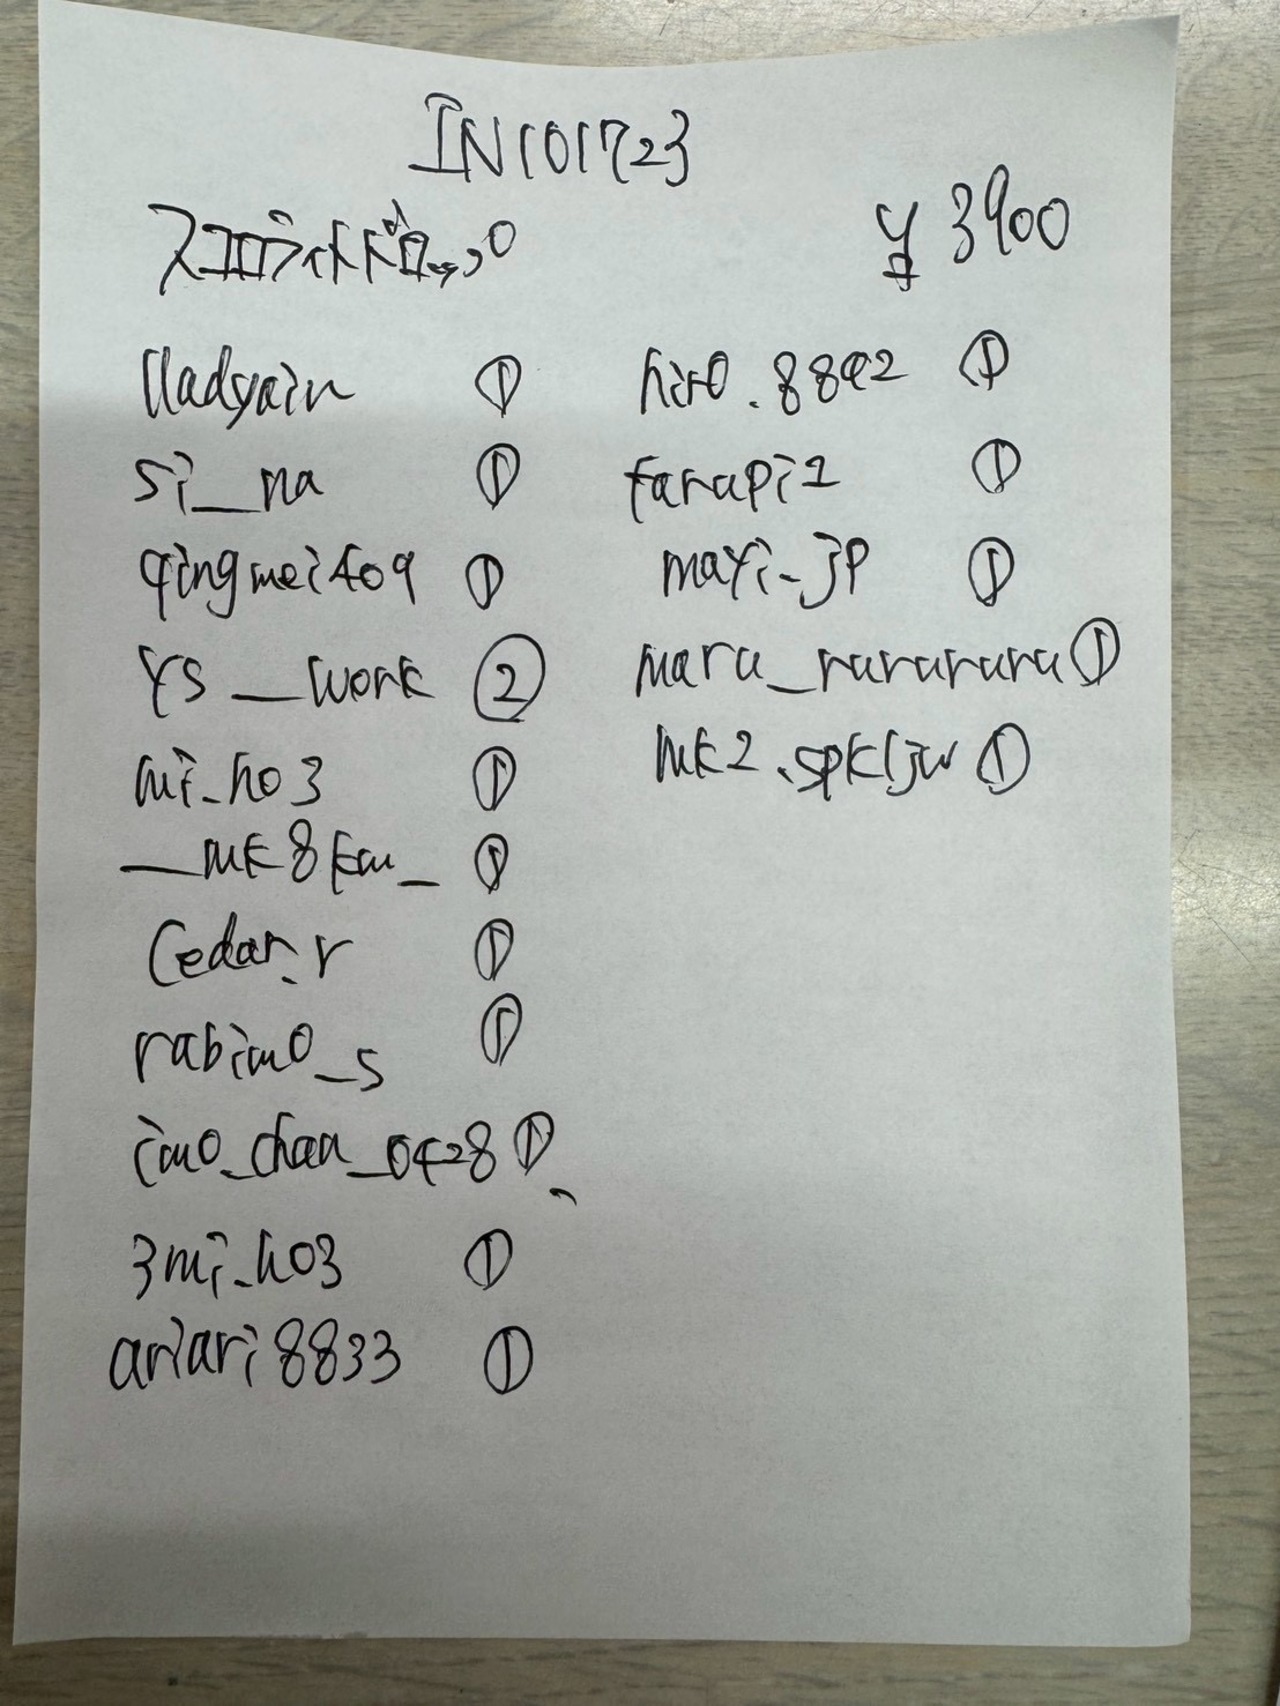 IN101723
スコロライトドロップ ¥3900
Uadyain ①
si__na ①
qingmei409 ①
YS__work ②
mi_ho3 ①
__mk8km_ ①
Cedar.r ①
rabimo_s ①
imo_chan_0428 ①
3mi_ho3 ①
ariari8833 ①
hiro.8892 ①
farapi1 ①
mayi_jp ①
maru_rurururu ①
mk2.spkljw ①